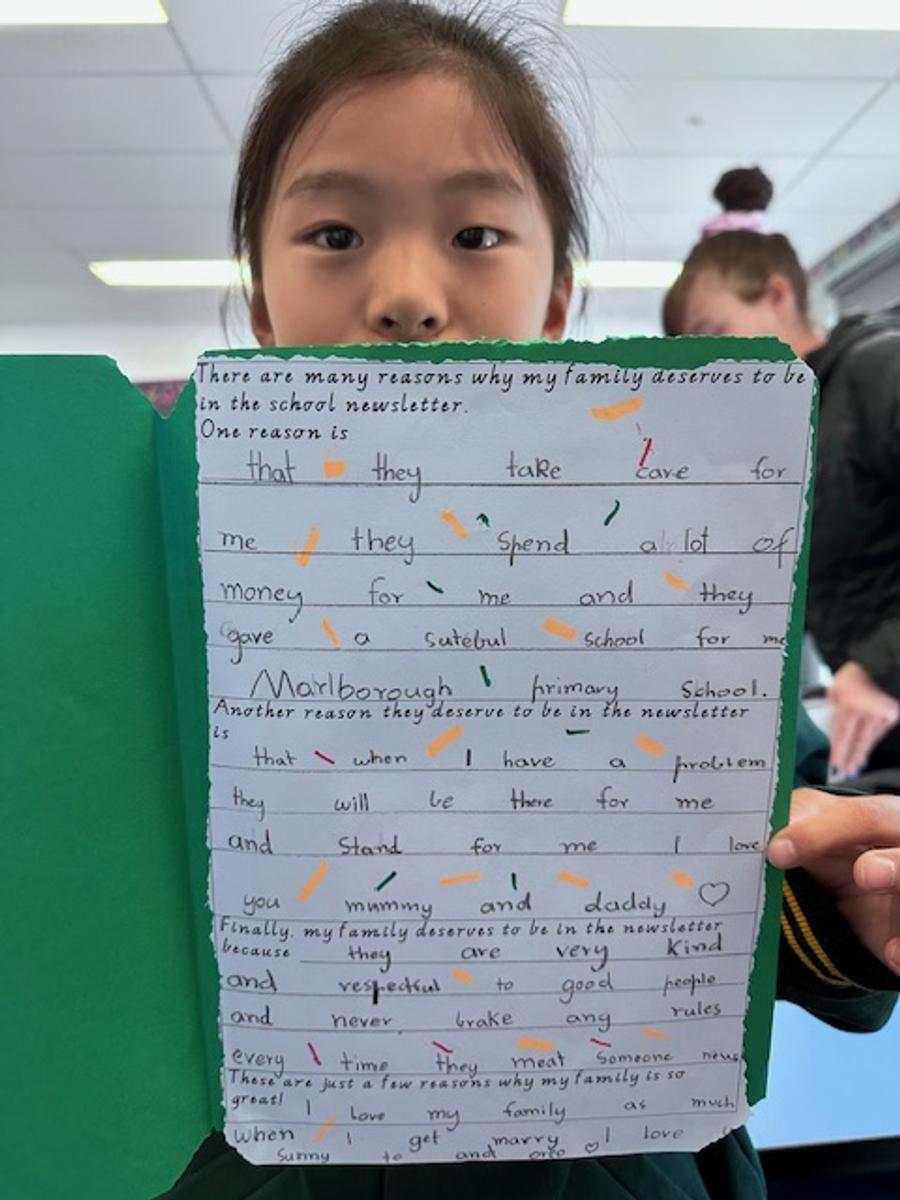 There are many reasons why my family deserves to be
in the school newsletter.
One reason is
that they take care for
me they spend a lot of
money for me and they
gave a sutebul school for me
Marlborough primary School.
Another reason they deserve to be in the newsletter
is
that when I have a problem
they will be there for me
and stand for me I love
you mummy and daddy
Finally, my family deserves to be in the newsletter
because they are very kind
and respectful to good people
and never brake any rules
every time they meat someone new
These are just a few reasons why my family is so
great! I love my family as much
when I get marry I love
Sunny to and oreo